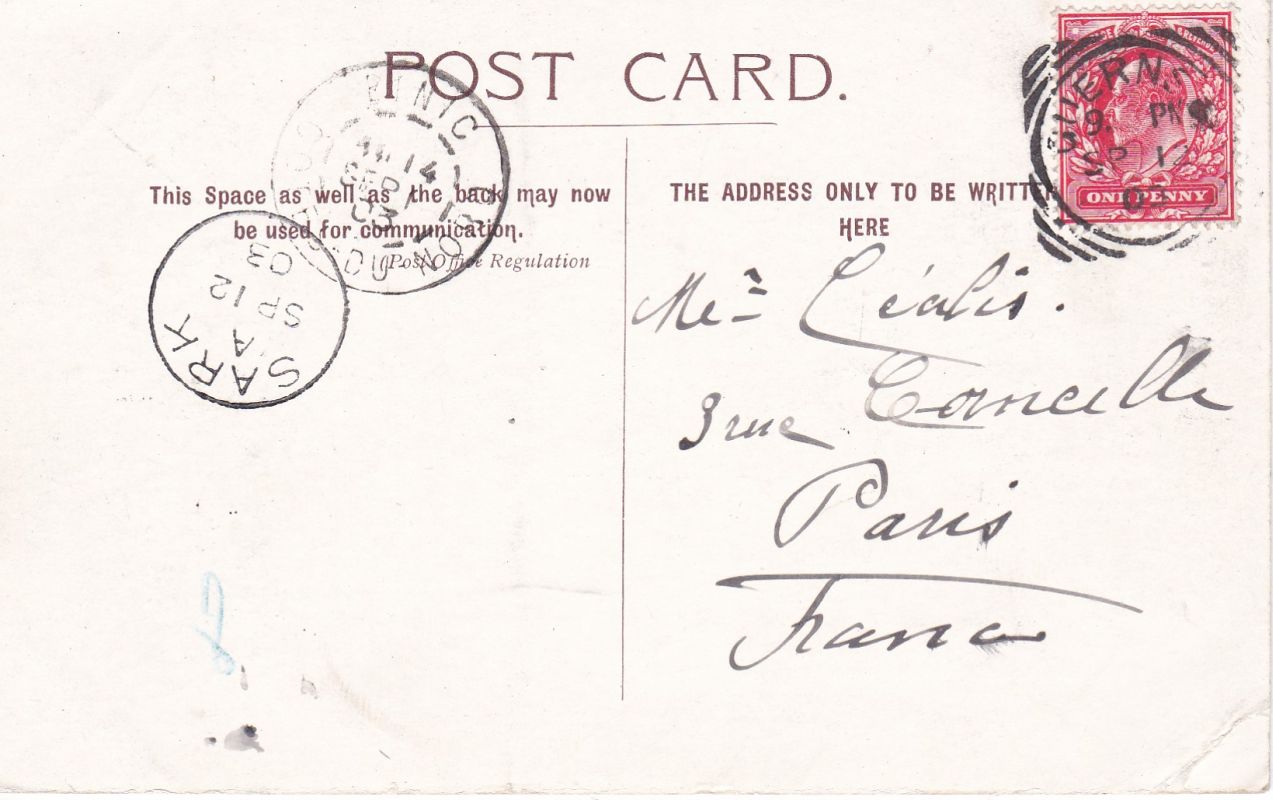 POST CARD.
This Space as well as the back may now
be used for communication.
(Post Office Regulation
THE ADDRESS ONLY TO BE WRITTEN
HERE
ONE PENNY
GUERNS
9. PM
SP 12
03
SARK
A
SP 12
03
14
SEP
03
3 rue Corneille
Paris
France